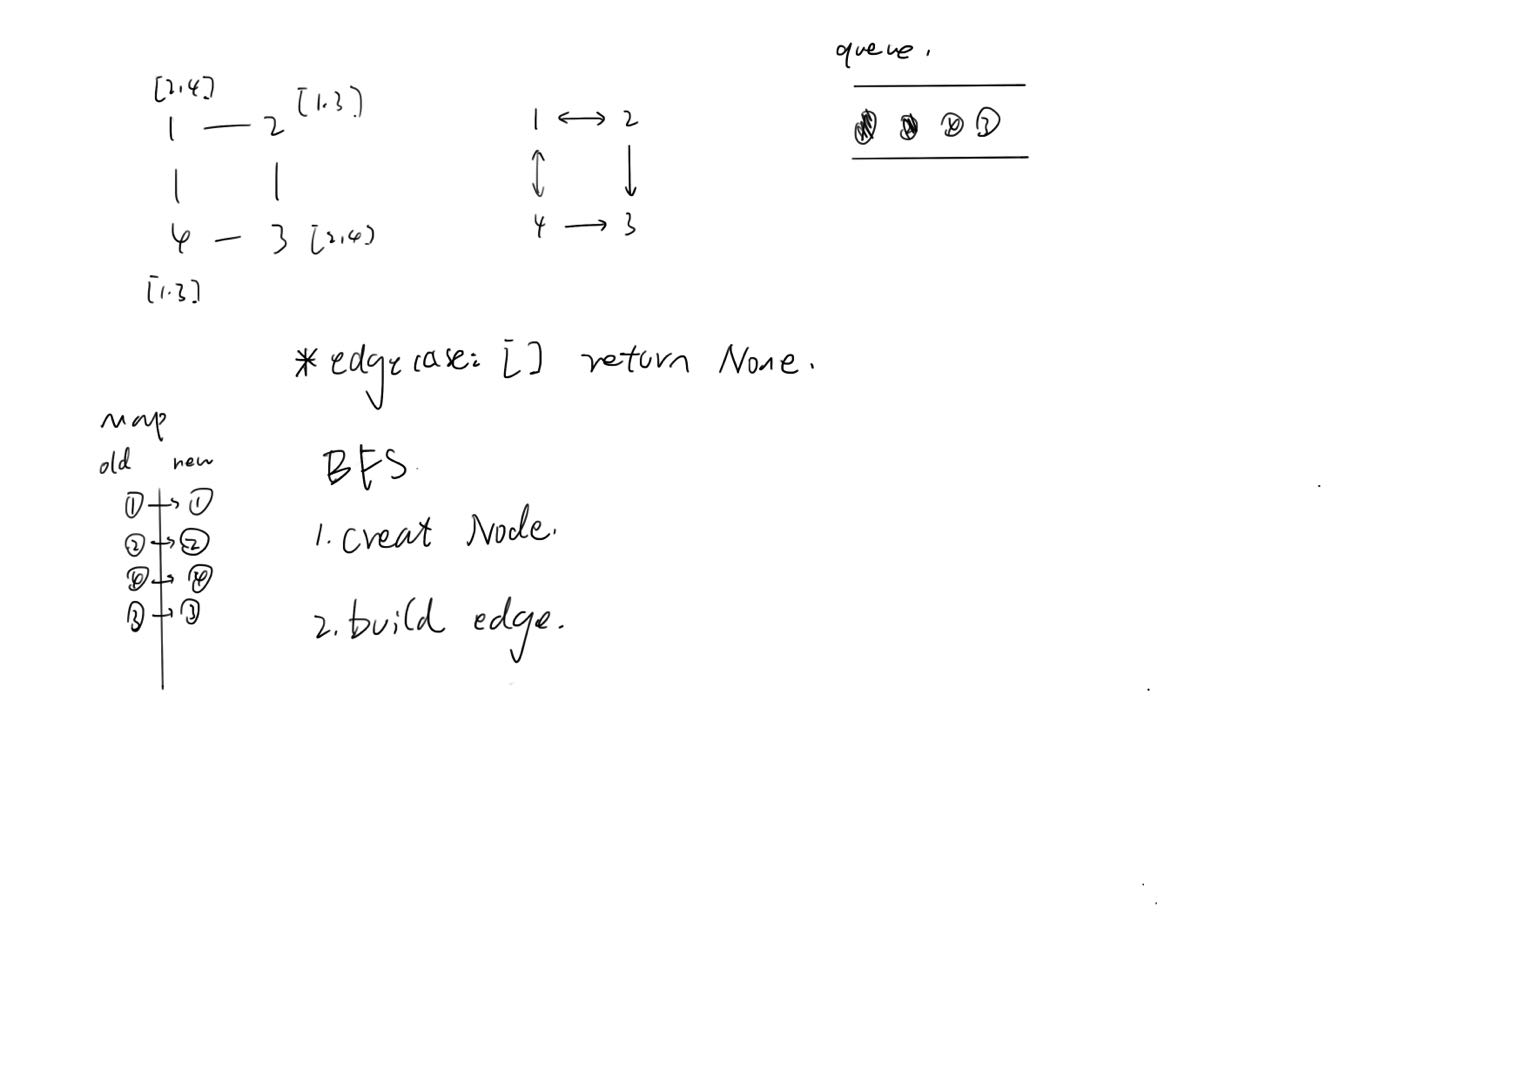 queue.
[2,4]
[1.3]
1 — 2
4 — 3 [2,4]
[1.3]
1 ↔ 2
4 → 3
④ ③
*edge case: [] return None.
map
old new
① → ①
② → ②
④ → ④
③ → ③
BFS.
1. creat Node.
2. build edge.